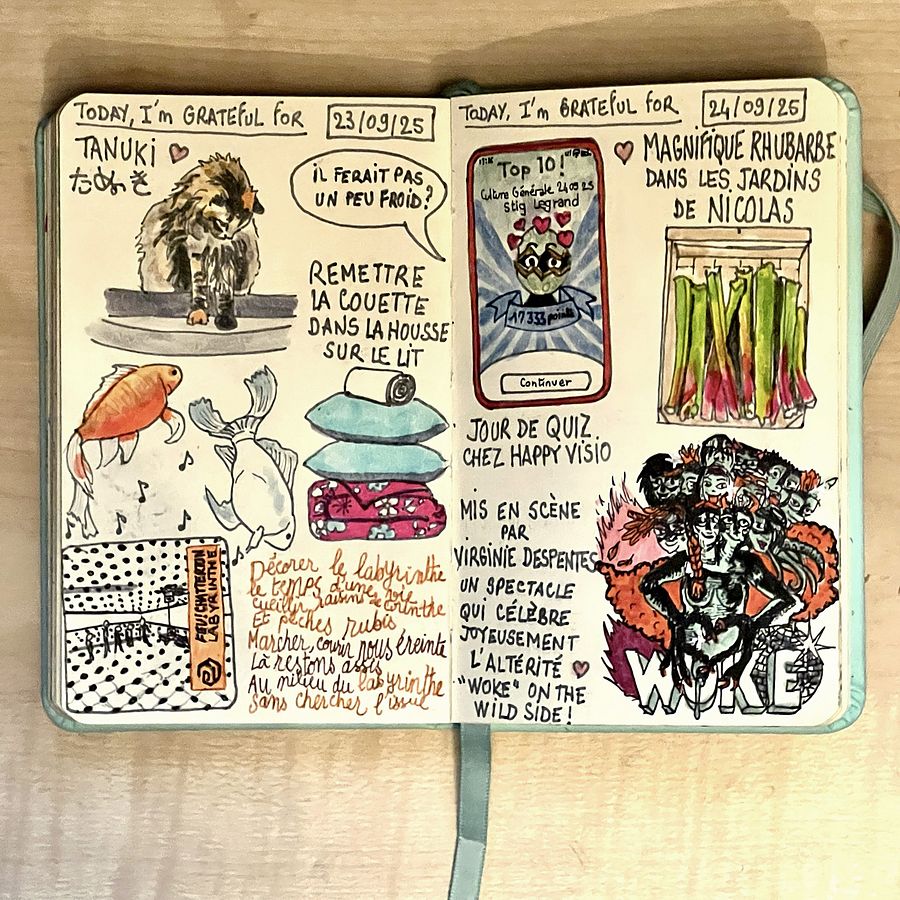 TODAY, I'm GRATEFUL FOR
23/09/25
TANUKI
たぬき
IL FERAIT PAS
UN PEU FROID?
REMETTRE
LA COUETTE
DANS LA HOUSSE
SUR LE LIT
PAUL CHATTERTON
LABYRINTHE
Décorer le labyrinthe
le temps d'une vie
cueillir raisins de corinthe
Et pêches rubis
Marcher, courir nous éreinte
Là restons assis
Au milieu du labyrinthe
Sans chercher l'issue
TODAY, I'm GRATEFUL FOR
24/09/25
Top 10!
Culture Générale 24 09 25
Stig Legrand
17 333 points
Continuer
JOUR DE QUIZ
CHEZ HAPPY VISIO
MAGNIFIQUE RHUBARBE
DANS LES JARDINS
DE NICOLAS
MIS EN SCÈNE
PAR
VIRGINIE DESPENTES
UN SPECTACLE
QUI CÉLÈBRE
JOYEUSEMENT
L'ALTÉRITÉ
"WOKE" ON THE
WILD SIDE!
WOKE